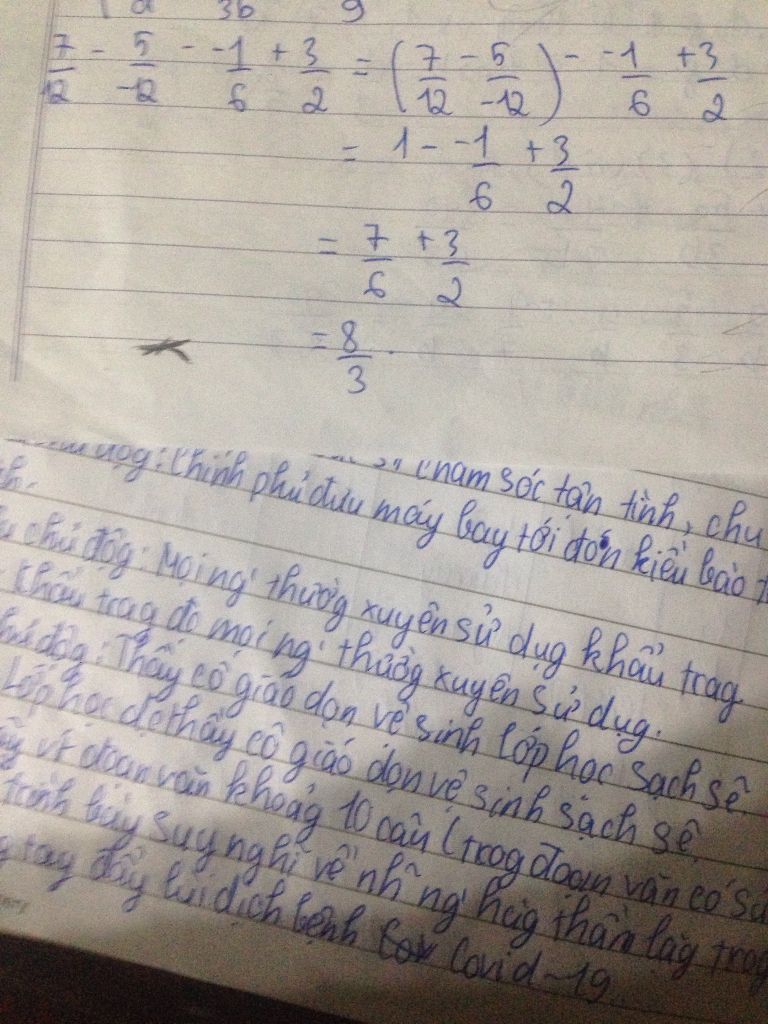 a 36 9
7/12 - 5/-12 - -1/6 + 3/2 = (7/12 - 5/-12) - -1/6 + 3/2
= 1 - -1/6 + 3/2
= 7/6 + 3/2
= 8/3.
chăm sóc tận tình, chu
: Chính phủ đưa máy bay tới đón kiều bào
chủ độg: Mọi ng' thườg xuyên sử dụg khẩu trag
Khẩu trag đc mọi ng' thườg xuyên sử dụg.
độg: Thấy cô giáo dọn vệ sinh lớp học sạch sẽ.
Lớp học đc thầy cô giáo dọn vệ sinh sạch sẽ.
đoạn văn khoảg 10 câu (trog đoạn văn có
bày suy nghĩ về nhữg ng' hùg thầm lặg trog
tay đẩy lùi dịch bệnh Covid-19